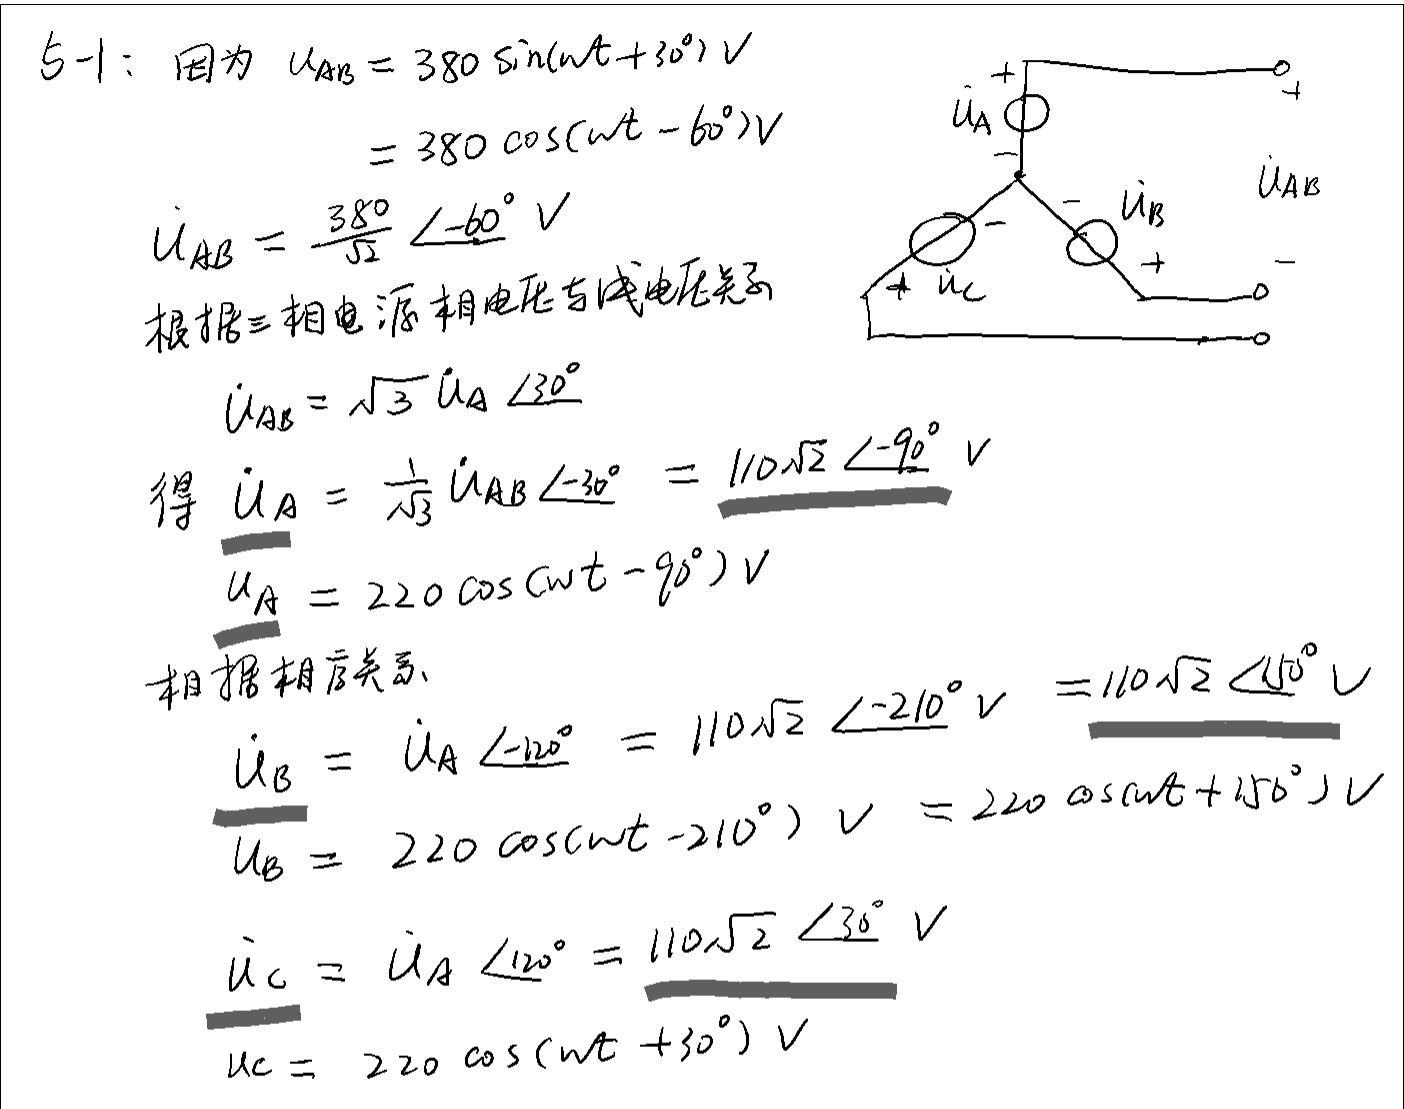 5-1: 因为 u_AB = 380 sin(ωt+30°) V
= 380 cos(ωt-60°) V
U̇_AB = 380/√2 ∠-60° V
根据三相电源相电压与线电压关系
U̇_AB = √3 U̇_A ∠30°
得 U̇_A = 1/√3 U̇_AB ∠-30° = 110√2 ∠-90° V
u_A = 220 cos(ωt-90°) V
根据相序关系
U̇_B = U̇_A ∠-120° = 110√2 ∠-210° V = 110√2 ∠150° V
u_B = 220 cos(ωt-210°) V = 220 cos(ωt+150°) V
U̇_C = U̇_A ∠120° = 110√2 ∠30° V
u_C = 220 cos(ωt+30°) V
+
U̇_A
-
+
U̇_AB
-
- U̇_B
+
-
+ U̇_C